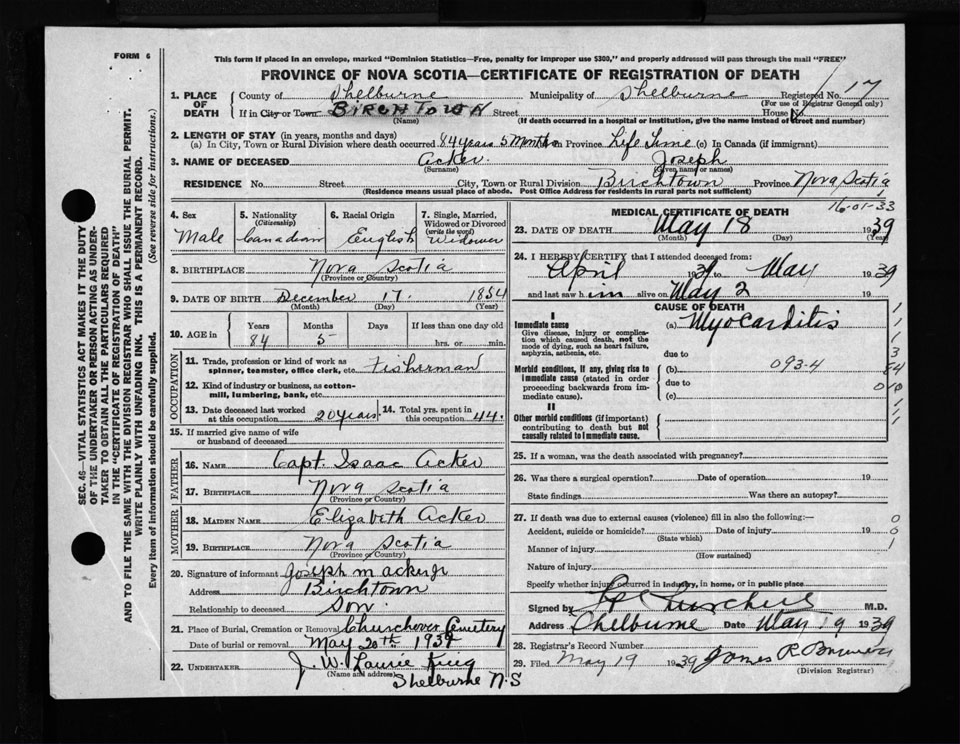 FORM 6
This form if placed in an envelope, marked "Dominion Statistics—Free, penalty for improper use $300," and properly addressed will pass through the mail "FREE"
PROVINCE OF NOVA SCOTIA—CERTIFICATE OF REGISTRATION OF DEATH
SEC. 46—VITAL STATISTICS ACT MAKES IT THE DUTY
OF THE UNDERTAKER OR PERSON ACTING AS UNDER-
TAKER TO OBTAIN ALL THE PARTICULARS REQUIRED
IN THE "CERTIFICATE OF REGISTRATION OF DEATH"
AND TO FILE THE SAME WITH THE DIVISION REGISTRAR WHO SHALL ISSUE THE BURIAL PERMIT.
WRITE PLAINLY WITH UNFADING INK. THIS IS A PERMANENT RECORD.
Every item of information should be carefully supplied. (See reverse side for instructions.)
1. PLACE OF DEATH County of Shelburne Municipality of Shelburne Registered No. 17
(For use of Registrar General only)
If in City or Town BIRCHTOWN Street House No.
(Name) (If death occurred in a hospital or institution, give the name instead of street and number)
2. LENGTH OF STAY (in years, months and days)
(a) In City, Town or Rural Division where death occurred 84 years 5 Months In Province Life Time (c) In Canada (if immigrant)
3. NAME OF DECEASED Acker. Joseph
(Surname) (Given name or names)
RESIDENCE No. Street City, Town or Rural Division Birchtown Province Nova Scotia
(Residence means usual place of abode. Post Office Address for residents in rural parts not sufficient)
4. Sex Male
5. Nationality (Citizenship) Canadian
6. Racial Origin English
7. Single, Married, Widowed or Divorced (write the word) Widower
8. BIRTHPLACE Nova Scotia
(Province or Country)
9. DATE OF BIRTH December 17. 1854
(Month) (Day) (Year)
10. AGE in Years Months Days If less than one day old
84 5 hrs. or min.
OCCUPATION
11. Trade, profession or kind of work as spinner, teamster, office clerk, etc. Fisherman
12. Kind of industry or business, as cotton-mill, lumbering, bank, etc.
13. Date deceased last worked at this occupation 20 years 14. Total yrs. spent in this occupation 44.
15. If married give name of wife or husband of deceased
FATHER
16. NAME Capt. Isaac Acker
17. BIRTHPLACE Nova Scotia
(Province or Country)
MOTHER
18. MAIDEN NAME Elizabeth Acker
19. BIRTHPLACE Nova Scotia
(Province or Country)
20. Signature of informant Joseph M Acker Jr
Address Birchtown
Relationship to deceased Son.
21. Place of Burial, Cremation or Removal Churchover Cemetery
Date of burial or removal May 20th 1939
22. UNDERTAKER J. W. Laurie King
(Name and address) Shelburne N.S
MEDICAL CERTIFICATE OF DEATH
16-01-33
23. DATE OF DEATH May 18 1939
(Month) (Day) (Year)
24. I HEREBY CERTIFY that I attended deceased from:
April 1939 to May 1939
and last saw him alive on May 2
CAUSE OF DEATH
I
Immediate cause (a) Myocarditis
Give disease, injury or complication which caused death, not the mode of dying, such as heart failure, asphyxia, asthenia, etc.
due to
Morbid conditions, if any, giving rise to immediate cause (stated in order proceeding backwards from immediate cause).
(b) 093-4
due to
(c)
II
Other morbid conditions (if important) contributing to death but not causally related to immediate cause.
1
1
1
3
84
0 10
1
1
25. If a woman, was the death associated with pregnancy?
26. Was there a surgical operation? Date of operation 19
State findings Was there an autopsy?
27. If death was due to external causes (violence) fill in also the following:— 0
Accident, suicide or homicide? Date of injury 19 0
(State which)
Manner of injury 1
(How sustained)
Nature of injury
Specify whether injury occurred in industry, in home, or in public place
Signed by Churchill M.D.
Address Shelburne Date May 19 1939
28. Registrar's Record Number
29. Filed May 19 1939 James R
(Division Registrar)